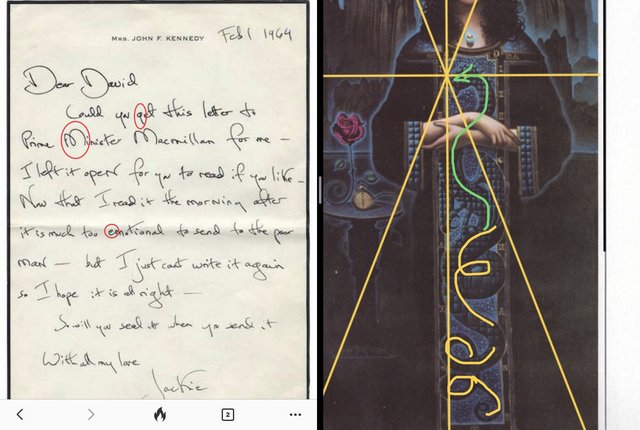 MRS. JOHN F. KENNEDY
Feb 1 1964
Dear David
Could you get this letter to
Prime Minister Macmillan for me —
I left it open for you to read if you like —
Now that I read it the morning after
it is much too emotional to send to the poor
man — but I just can't write it again
so I hope it is all right —
So will you seal it when you send it
With all my love
Jackie
2